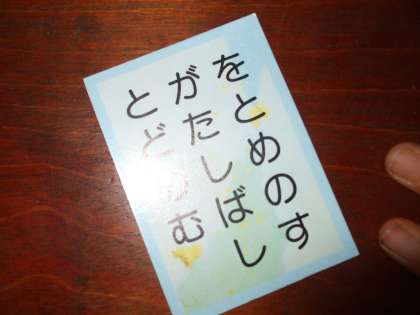 をとめのす
がたしばし
とどめむ